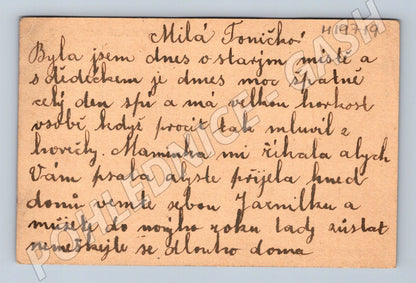 Milá Toničko! H19719
Byla jsem dnes v starým místě a
s dědečkem je dnes moc špatně
celý den spí a má velkou horkost
vsobě když procit tak mluvil z
horečky. Maminka mi říhala abych
Vám psala abyste přijela hned
domů vemte sebou Jarmilku a
můžete do novýho roku tady zůstat
nemeškejte se dlouho doma
POHLEDNICE - CASH